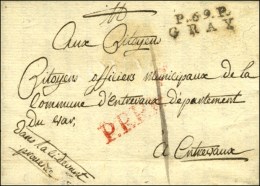 P.69.P.
GRAY
Aux Citoyens
Citoyens officiers municipaux de la
Commune d'Entrevaux département
du var,
P.P.
a Entrevaux